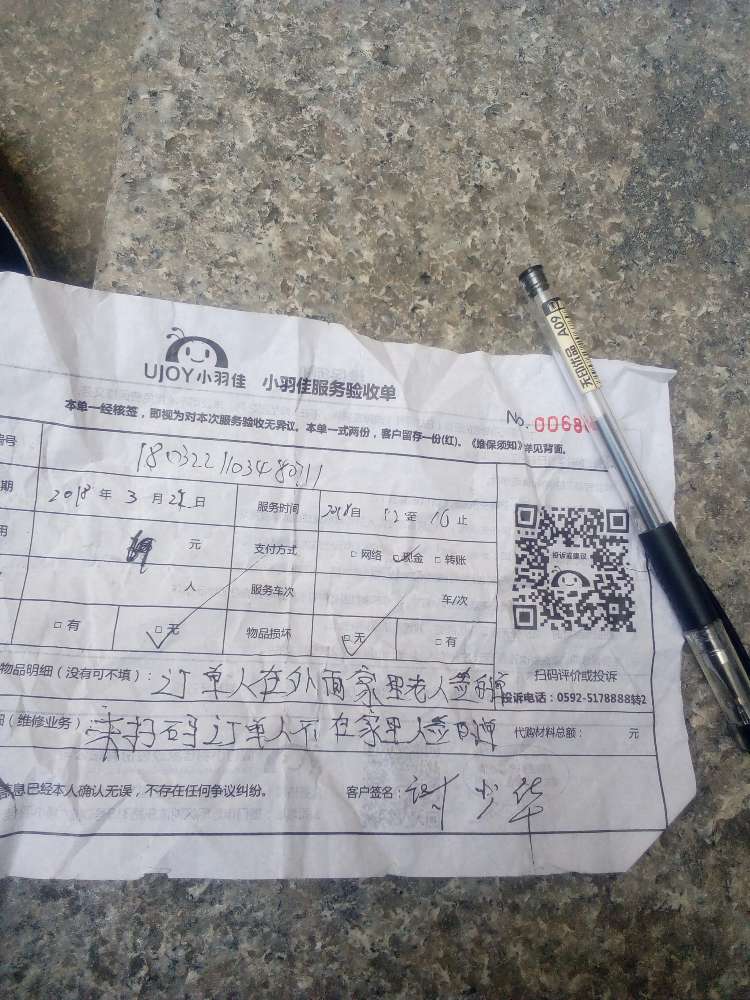 UJOY小羽佳 小羽佳服务验收单
本单一经核签，即视为对本次服务验收无异议。本单一式两份，客户留存一份(红)。《维保须知》详见背面。
No.0068
编号 180322110348
期 2018年3月2 日 服务时间 2018自 12至16止
用 元 支付方式 □网络 □现金 □转账
人 服务车次 车/次
□有 □无 物品损坏 □无 □有
投诉或建议
扫码评价或投诉
投诉电话：0592-5178888转2
物品明细（没有可不填）：订单人在外面家里老人签的单
（维修业务） 扫码订单人不在家里人签 单
代购材料总额： 元
信息已经本人确认无误，不存在任何争议纠纷。 客户签名： 少华
A09